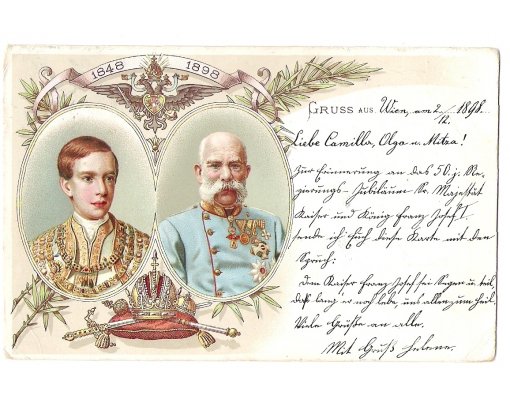 1848
1898
GRUSS AUS Wien, am 2./12. 1898.
Liebe Camilla, Olga u. Mitza!
Zur Erinnerung an das 50. j. Re-
gierungs-Jubiläum Sr. Majestät
Kaiser und König Franz Josef I.
sende ich Euch diese Karte mit dem
Spruch:
Dem Kaiser Franz Josef sei Segen u. Heil,
daß lang er noch lebe, uns allen zum Heil.
Viele Grüße an alle.
Mit Gruß Helene.